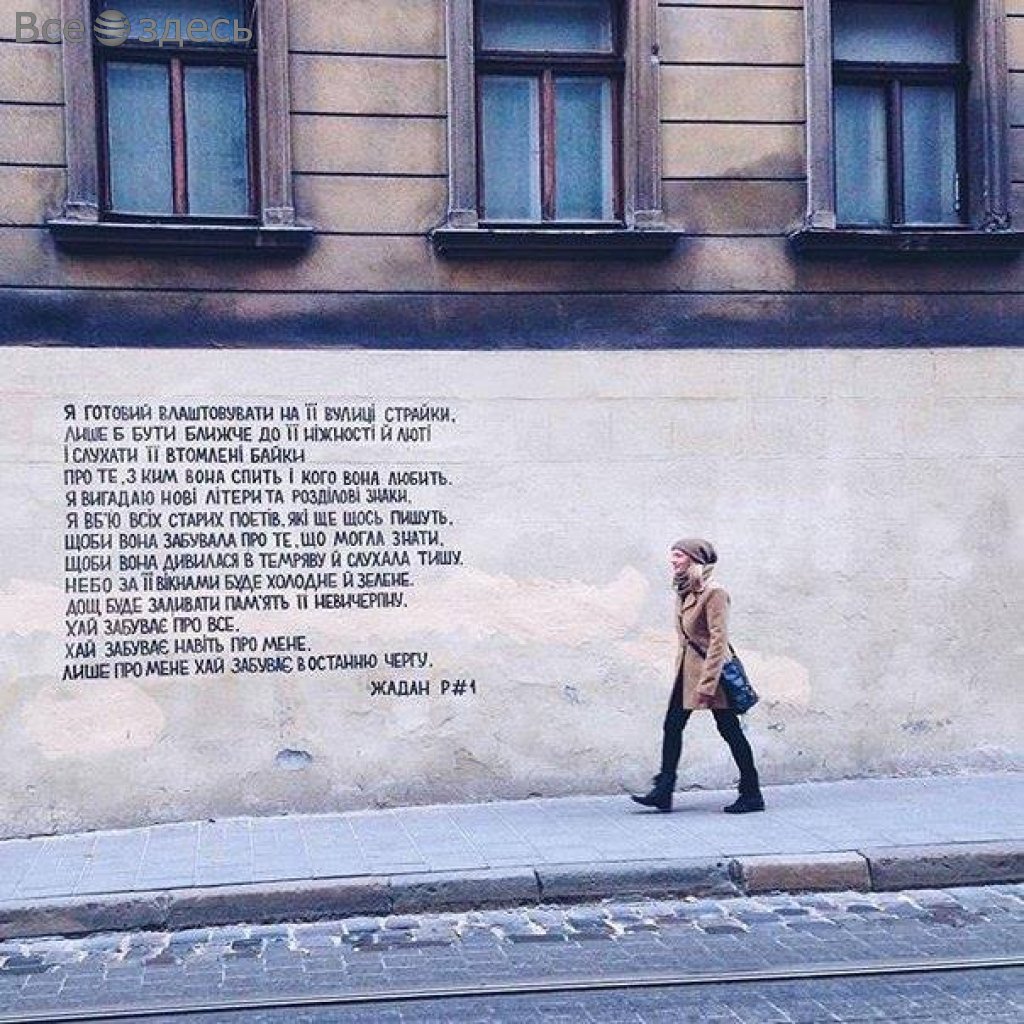 Все здесь
Я ГОТОВИЙ ВЛАШТОВУВАТИ НА ЇЇ ВУЛИЦІ СТРАЙКИ,
ЛИШЕ Б БУТИ БЛИЖЧЕ ДО ЇЇ НІЖНОСТІ Й ЛЮТІ
І СЛУХАТИ ЇЇ ВТОМЛЕНІ БАЙКИ
ПРО ТЕ, З КИМ ВОНА СПИТЬ І КОГО ВОНА ЛЮБИТЬ.
Я ВИГАДАЮ НОВІ ЛІТЕРИ ТА РОЗДІЛОВІ ЗНАКИ,
Я ВБ'Ю ВСІХ СТАРИХ ПОЕТІВ, ЯКІ ЩЕ ЩОСЬ ПИШУТЬ,
ЩОБИ ВОНА ЗАБУВАЛА ПРО ТЕ, ЩО МОГЛА ЗНАТИ,
ЩОБИ ВОНА ДИВИЛАСЯ В ТЕМРЯВУ Й СЛУХАЛА ТИШУ.
НЕБО ЗА ЇЇ ВІКНАМИ БУДЕ ХОЛОДНЕ Й ЗЕЛЕНЕ.
ДОЩ БУДЕ ЗАЛИВАТИ ПАМ'ЯТЬ ЇЇ НЕВИЧЕРПНУ.
ХАЙ ЗАБУВАЄ ПРО ВСЕ.
ХАЙ ЗАБУВАЄ НАВІТЬ ПРО МЕНЕ.
ЛИШЕ ПРО МЕНЕ ХАЙ ЗАБУВАЄ В ОСТАННЮ ЧЕРГУ.
ЖАДАН Р#1